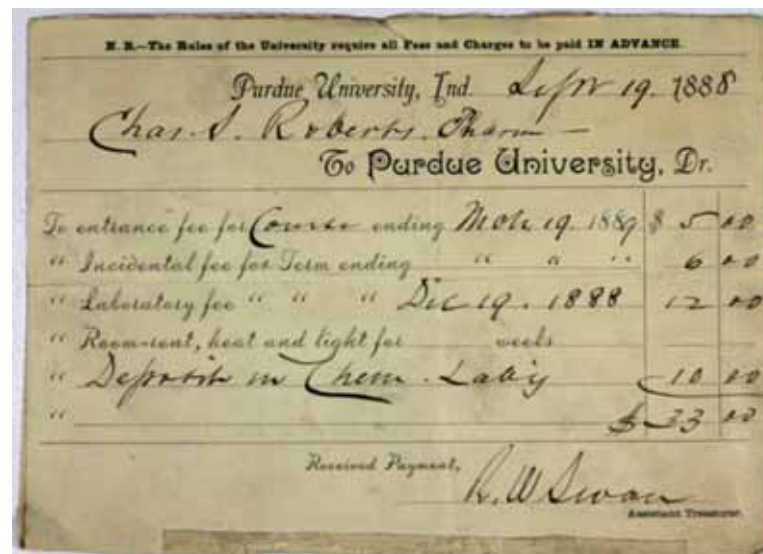 N. B.—The Rules of the University require all Fees and Charges to be paid IN ADVANCE.
Purdue University, Ind. Sept 19. 1888
Chas. S. Roberts. Pharm —
To Purdue University, Dr.
To entrance fee for Course ending Mch 19. 1889 $ 5 00
" Incidental fee for Term ending " " " 6 00
" Laboratory fee " " " Dec 19. 1888 12 00
" Room-rent, heat and light for weeks
" Deposit in Chem. Lab'y 10 00
" $ 33 00
Received Payment,
R. W Swan
Assistant Treasurer.